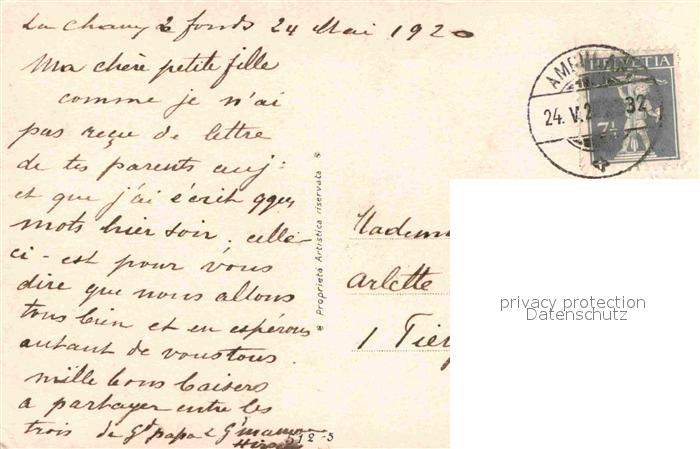 La Chaux 2 fonds 24 Mai 1920
Ma chère petite fille
comme je n'ai
pas reçu de lettre
de tes parents auj:
et que j'ai écrit qques
mots hier soir, celle
ci - est pour vous
dire que nous allons
tous bien et en espérons
autant de vous tous.
mille bons baisers
a partager entre les
trois de Gd papa & Gd maman
512-5
® Proprietà Artistica riservata ®
HELVETIA
7½
24. V. 2 32
Mademoi
Arlette
1 Tier
privacy protection
Datenschutz